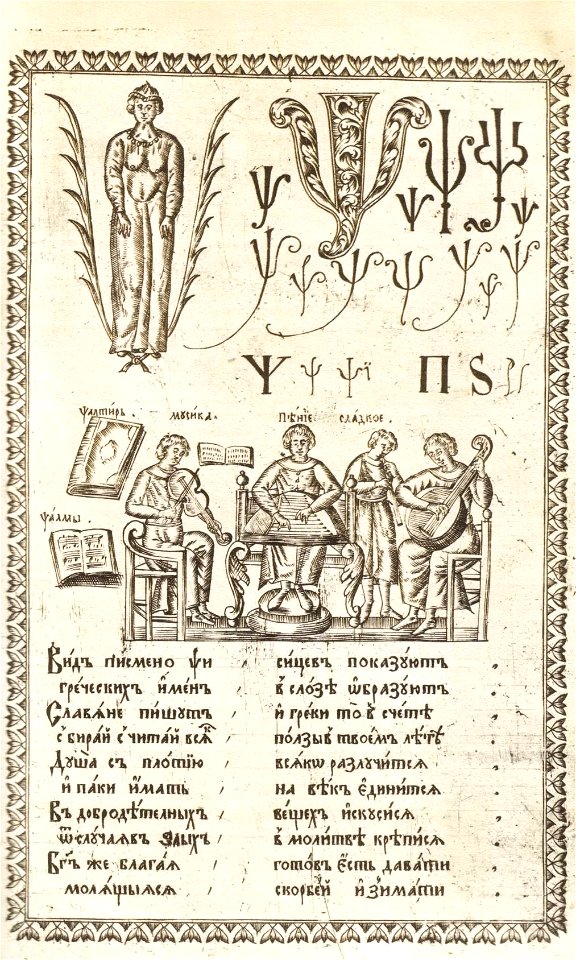 Ѱ ѱ ѱї П Ѕ
ѱалтирь. мусика. пѣнїе сладкое.
ѱалмы.
Видъ писмено ѱи сицевъ показуютъ
греческихъ именъ в слозѣ ѡбразуютъ
Славяне пишутъ и греки то в счетѣ
Душа съ плотїю всякѡ разлучится
и паки имать на вѣкъ единится
Въ добродѣтелныхъ вещехъ искусися
ѿ случаявъ злыхъ в молитвѣ крѣпися
Бг҃ъ же благая готовъ есть давати
молящыяся скорбей изимати